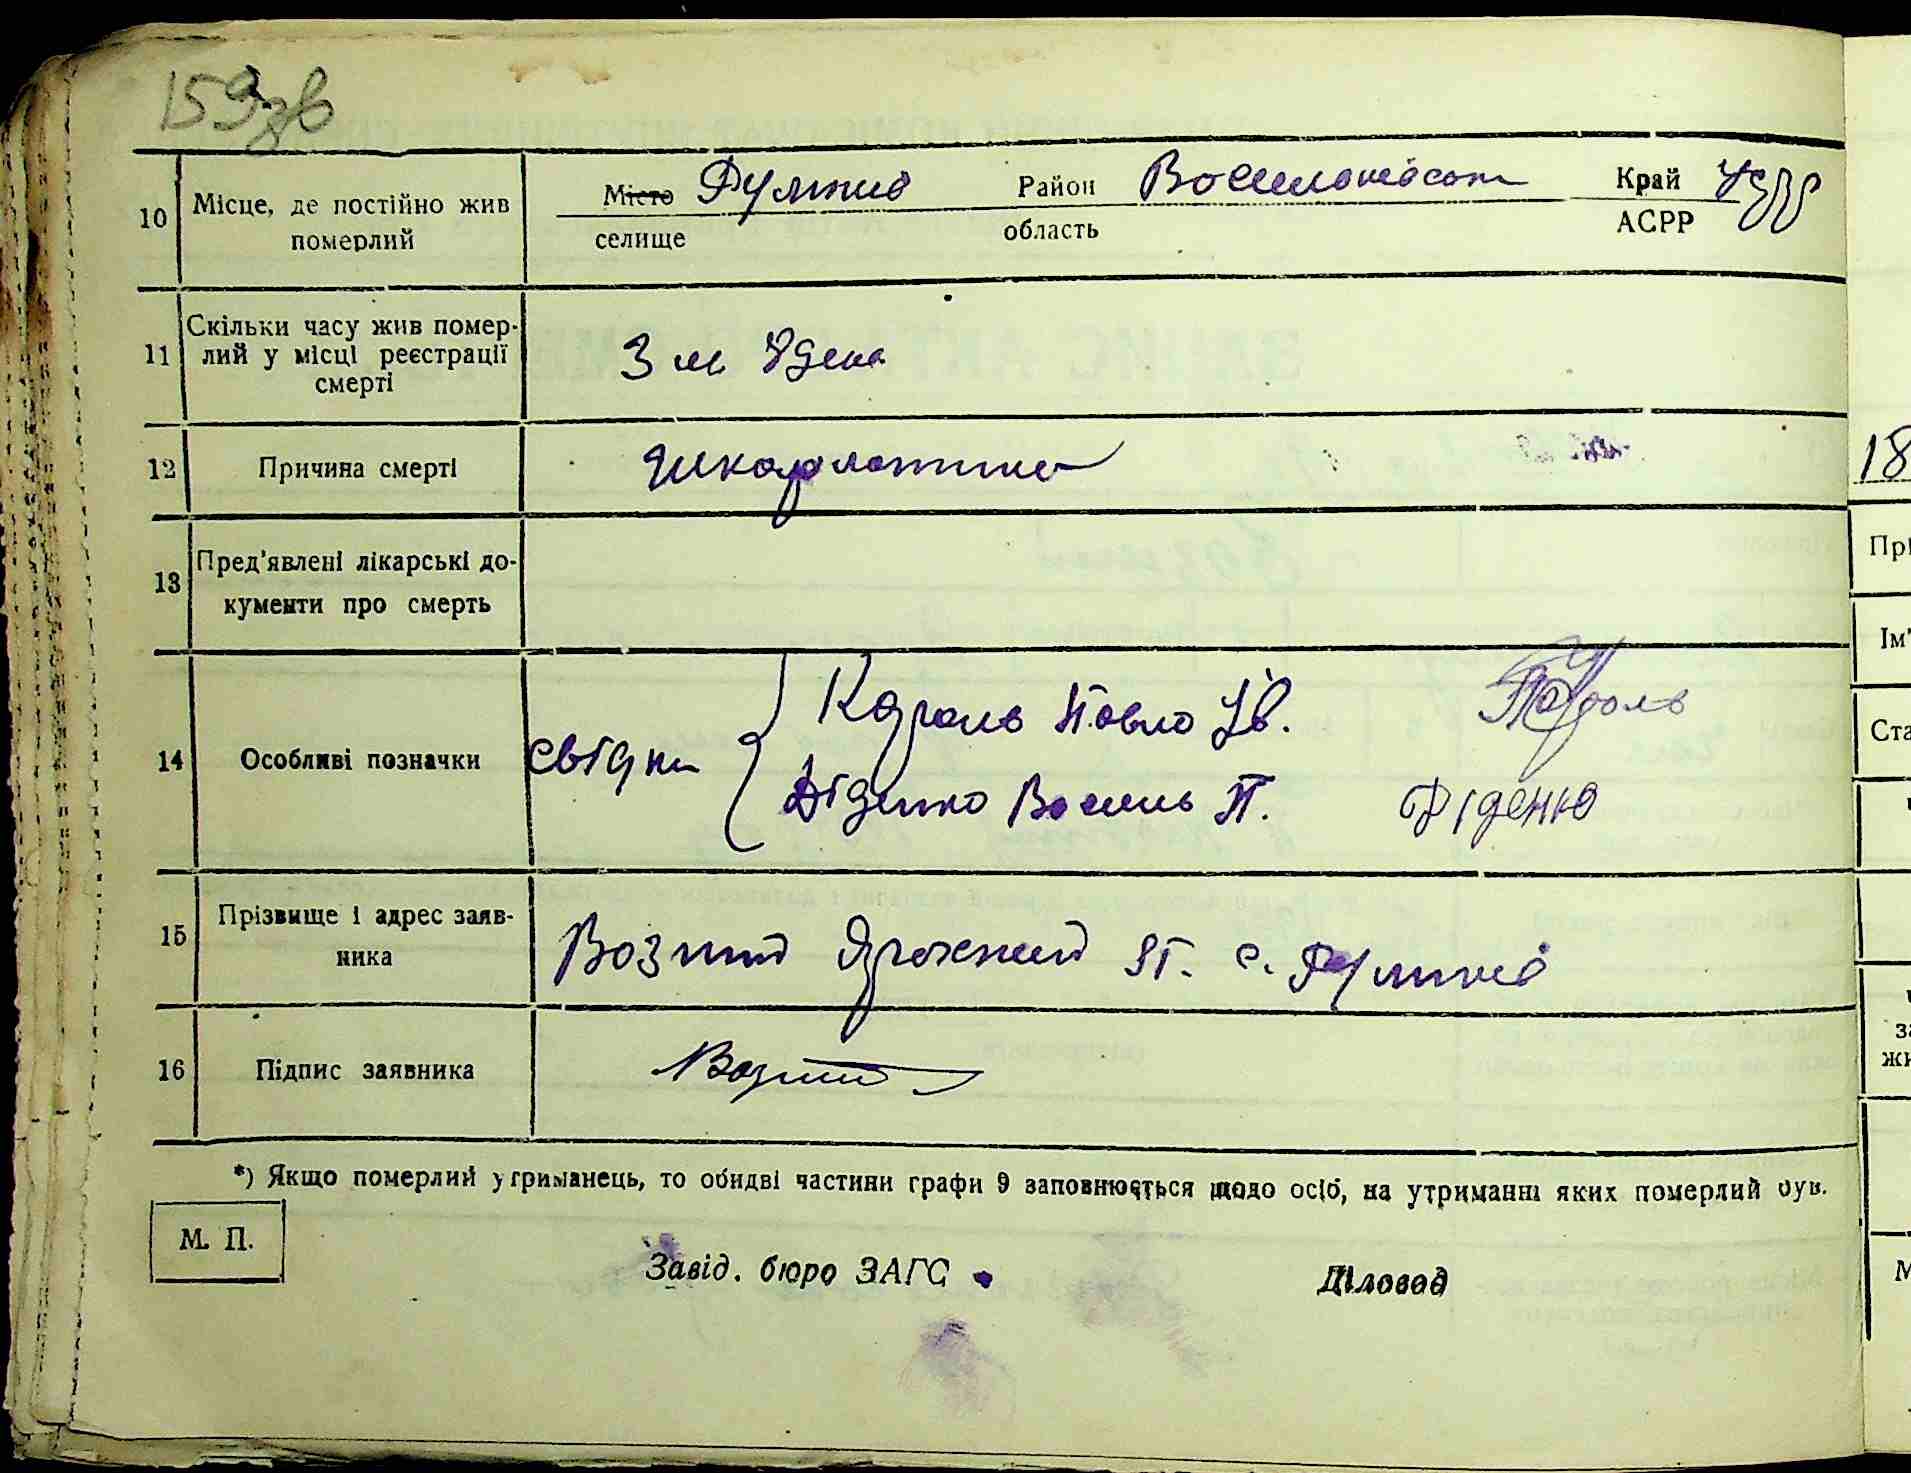 159зв
10 Місце, де постійно жив померлий Місто селище Район область Васильківськ Край АСРР УСРР
11 Скільки часу жив помер-
лий у місці реєстрації
смерті
3 м 8 день
12 Причина смерті Шкарлатина
13 Пред'явлені лікарські до-
кументи про смерть
14 Особливі позначки свідки
Король Павло Ів.
Діденко Василь П. Діденко
15 Прізвище і адрес заяв-
ника
Возний П. с.
16 Підпис заявника
*) Якщо померлий утриманець, то обидві частини графи 9 заповнюється щодо осіб, на утриманні яких померлий був.
М. П.
Завід. бюро ЗАГС Діловод
18
Прі
Ім'
Ста
за
жи
М